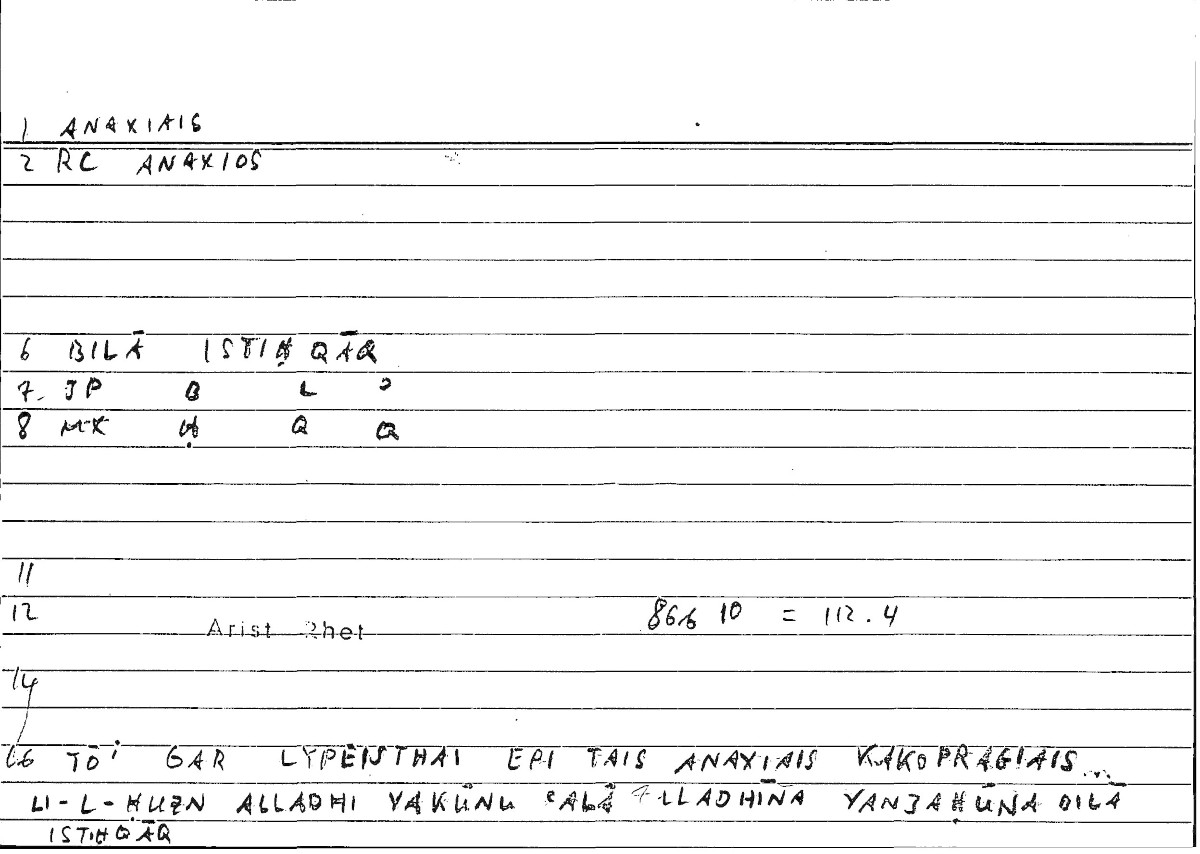 1 ANAXIAIS
2 RC ANAXIOS
6 BILĀ ISTIḤQĀQ
7. JP B L ʾ
8 MK Ḥ Q Q
11
12 Arist Rhet 86b 10 = 112.4
14
16 TŌI GAR LYPEISTHAI EPI TAIS ANAXIAIS KAKOPRAGIAIS...
LI-L-ḤUZN ALLADHI YAKŪNU ʿALĀ LLADHĪNA YANJAḤŪNA BILĀ
ISTIḤQĀQ